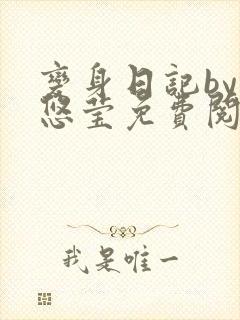 變身日記by
悠莹免費閱
我是唯一